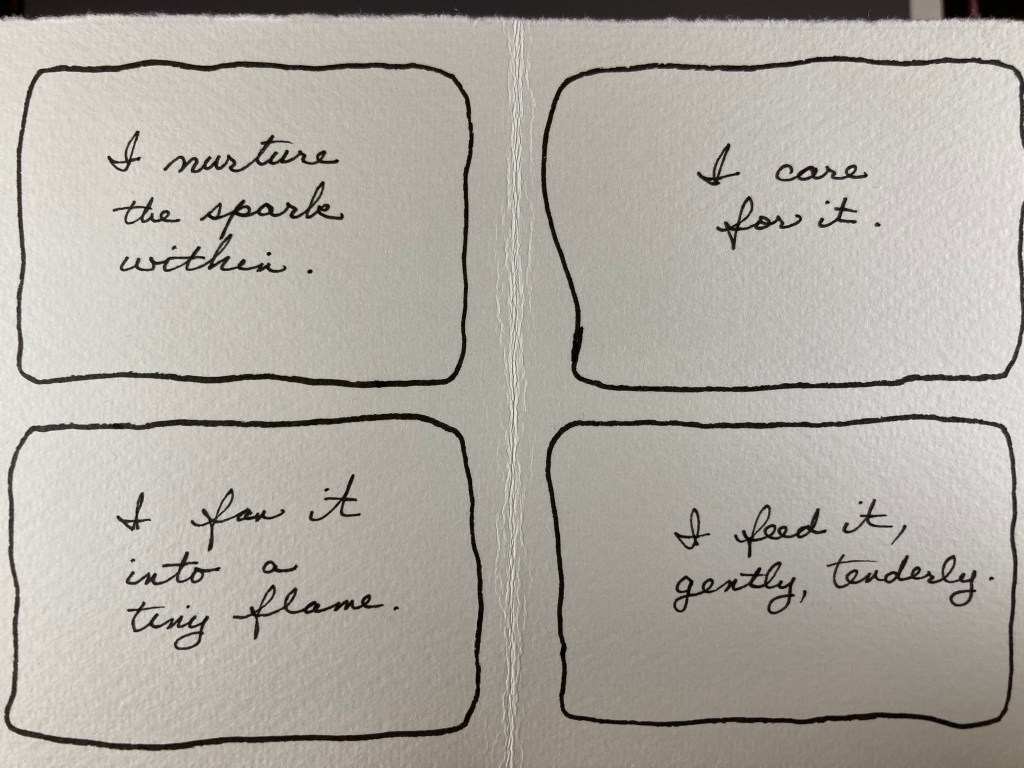 I nurture
the spark
within.
I care
for it.
I fan it
into a
tiny flame.
I feed it,
gently, tenderly.